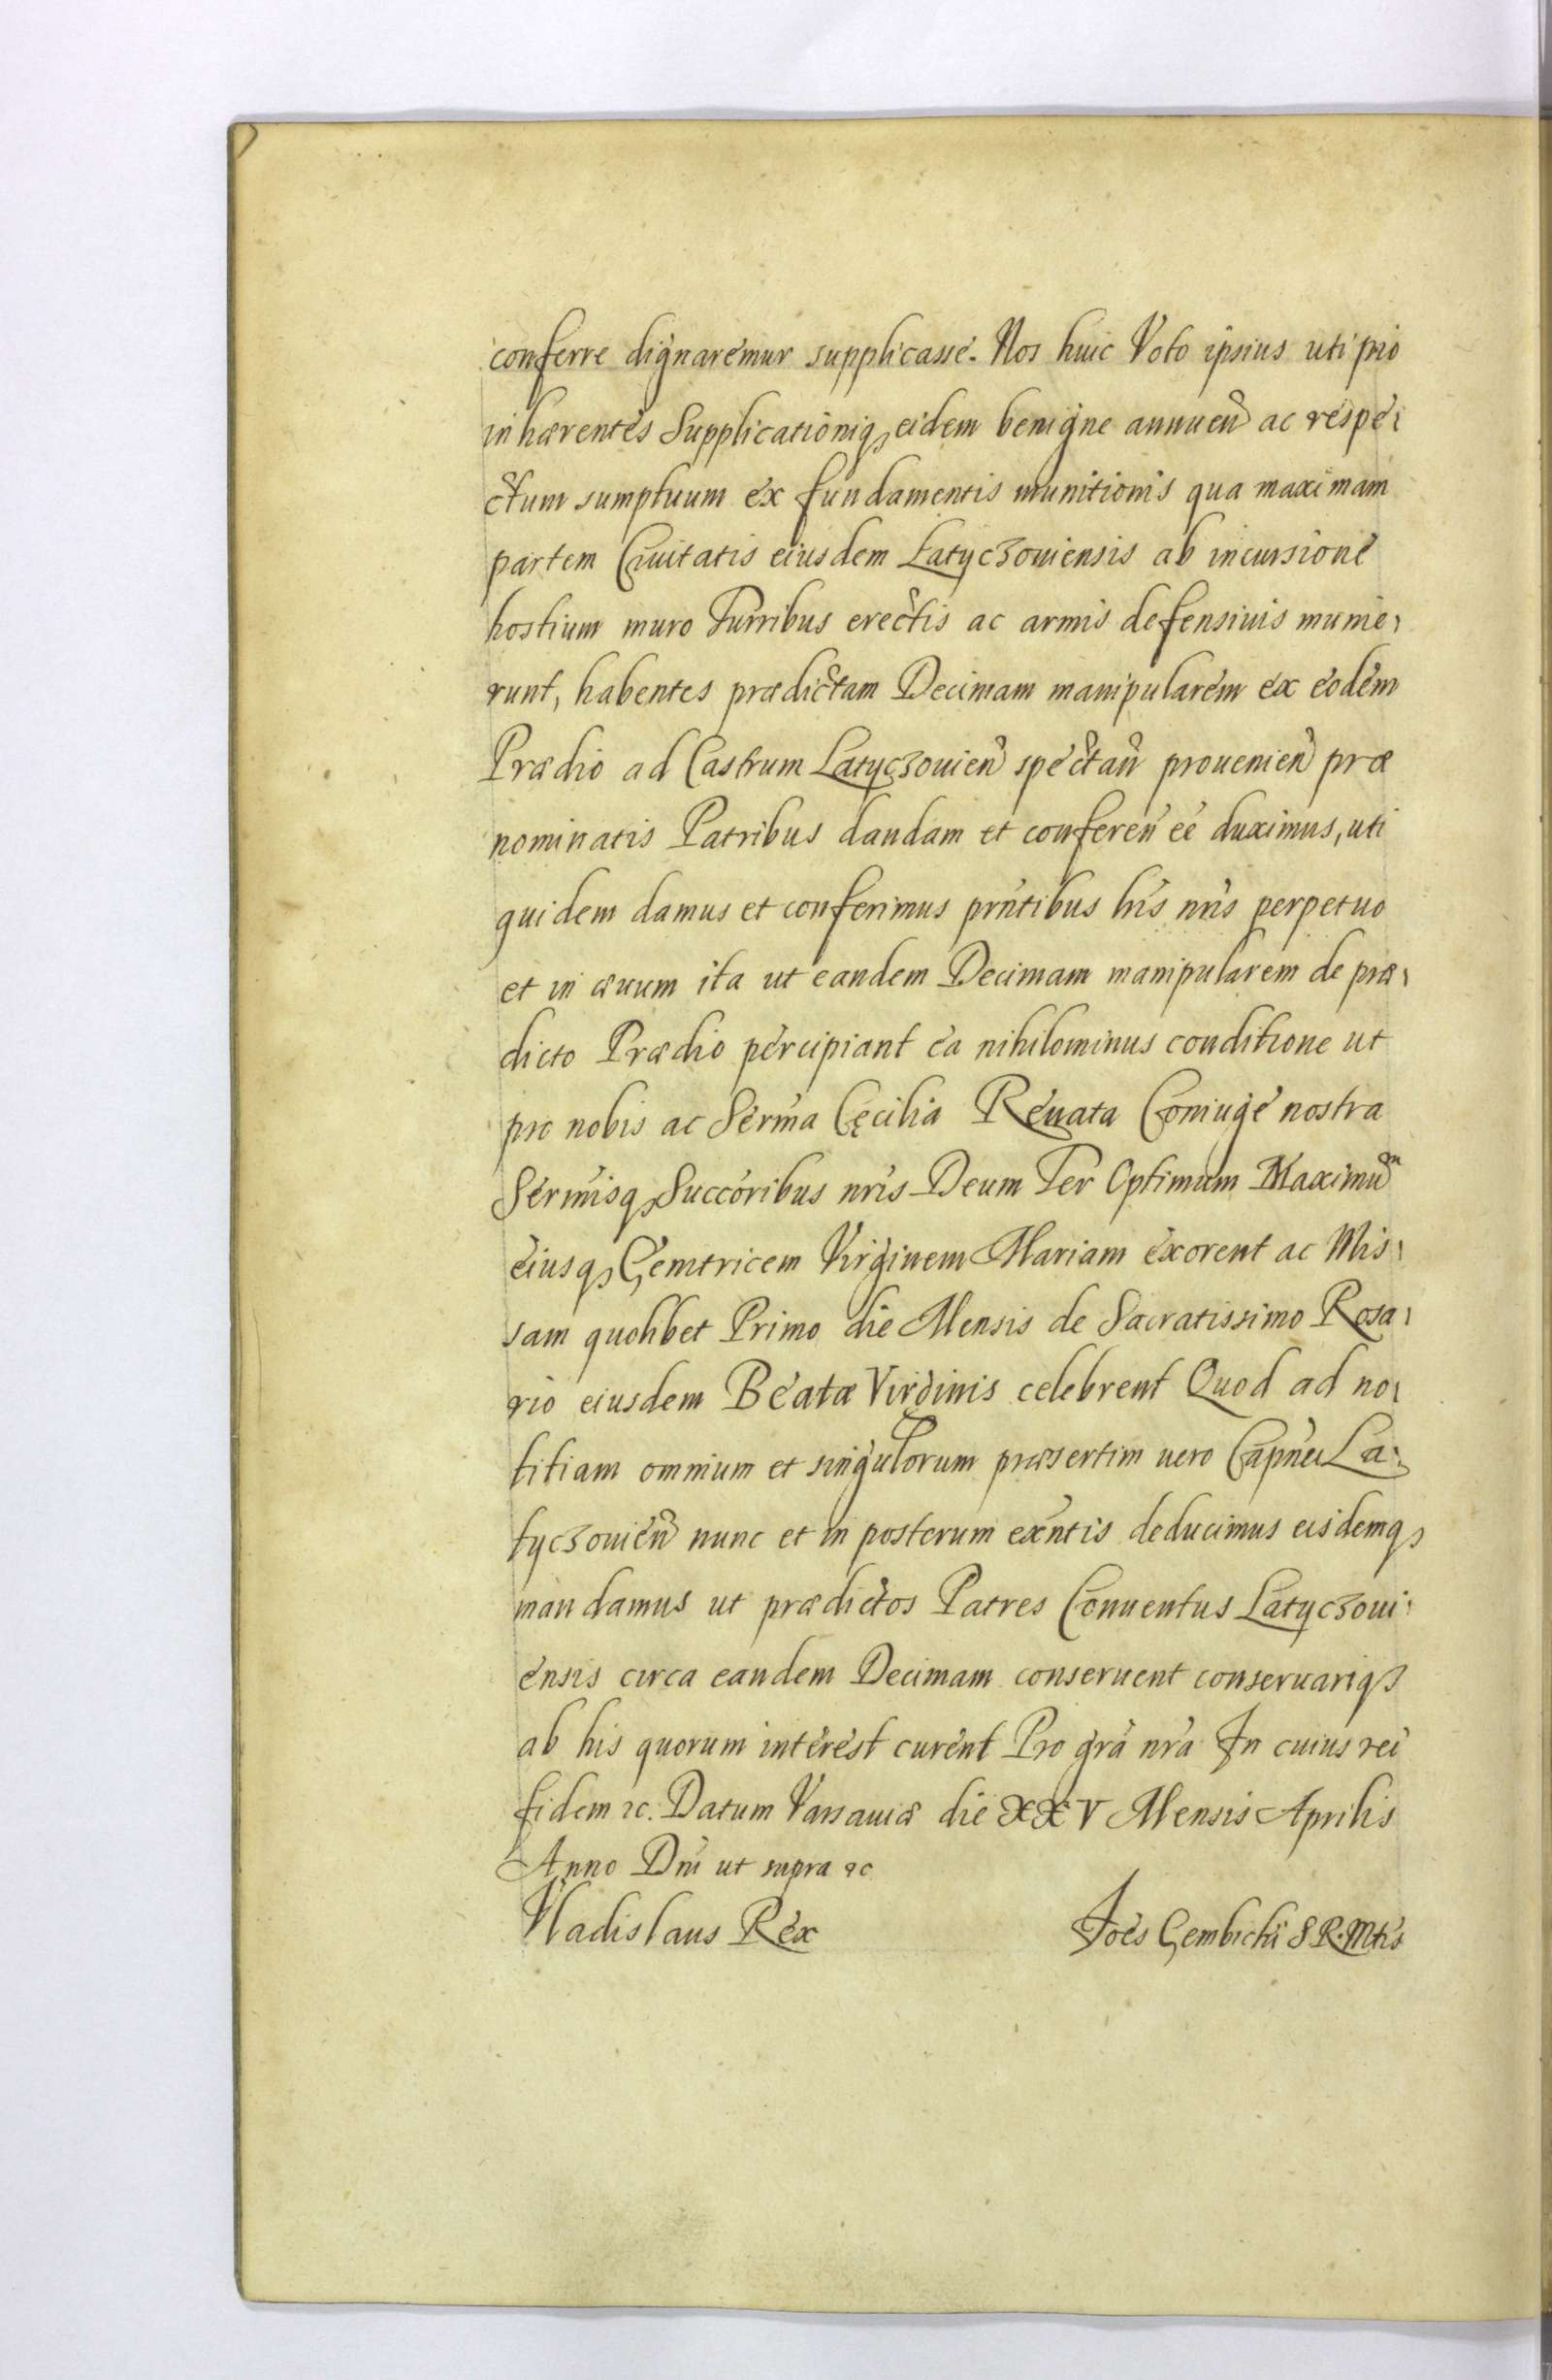 conferre dignaremur supplicasse. Nos huic Voto ipsius uti pio
inhærentes Supplicationiq, eidem benigne annueñ ac respe-
ctum sumptuum ex fundamentis munitionis qua maximam
partem Ciuitatis eiusdem Latyczouiensis ab incursione
hostium muro Turribus erectis ac armis defensiuis munie-
runt, habentes prædictam Decimam manipularem ex eodem
Prædio ad Castrum Latyczouień spectań prouenień præ
nominatis Patribus dandam et confereń eé duximus, uti
quidem damus et conferimus prńtibus his nris perpetuo
et in æuum ita ut eandem Decimam manipularem de præ-
dicto Prædio percipiant ea nihilominus conditione ut
pro nobis ac Serma Cęcilia Renata Coniuge nostra
Sermisq, Succoribus nris Deum Ter Optimum Maximum
eiusq, Genitricem Virginem Mariam exorent ac Mis-
sam quolibet Primo die Mensis de Sacratissimo Rosa-
rio eiusdem Beatæ Virginis celebrent Quod ad no-
titiam omnium et singulorum præsertim uero Capnei La-
tyczouień nunc et in posterum exńtis deducimus eisdemq,
mandamus ut prædictos Patres Conuentus Latyczoui-
ensis circa eandem Decimam conseruent conseruariq,
ab his quorum interest curent Pro gra nra In cuius rei
fidem &c. Datum Varsauiæ die XXV Mensis Aprilis
Anno Dni ut supra &c
Vladislaus Rex Joes Gembicki S R. Mtis